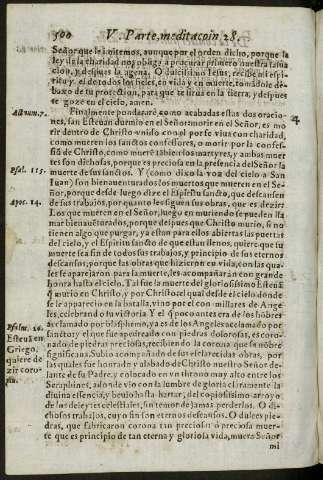 500 V. Parte, meditacoin, 28.
Señor que le imitemos, aunque por el orden dicho, porque la
ley de la charidad nos obliga a procurar primero nuestra salua
cion, y despues la agena. O dulcissimo Iesus, recibe mi espi-
ritu y el de todos los fieles, en vida y en muerte, tomádole de
baxo de tu proteccion, para que te sirua en la tierra, y despues
te goze en el cielo, amen.
Actuum.7.
Finalmente ponderaré, como acabadas estas dos oracio-
nes, san Esteuan durmio en el Señor: morir en el Señor, es mo
rir dentro de Christo vnido con el por fe viua con charidad,
como mueren los santos confessores, o morir por la confes-
sió de Christo, como mueré tábien los martyres, y ambas muer
Psal. 115.
tes son dichosas, porque es preciosa en la presencia del Señor la
muerte de sus santos. Y (como dixo la voz del cielo a San
Iuan) son bienauenturados los muertos que mueren en el Se-
Apoc. 14.
ñor, porque desde luego dize el Espiritu sancto, que descansen
de sus trabajos, por quanto les siguen sus obras, que es dezir:
Los que mueren en el Señor, luego en muriendo se pueden lla
mar bienauenturados, porque despues que Christo murio, si no
tienen algo que purgar, ya estan para ellos abiertas las puertas
del cielo, y el Espiritu sancto de que estan llenos, quiere que su
muerte sea fin de todos sus trabajos, y principio de sus eternos
descansos, porque las obras que hizieron en vida, con las qua-
les se aparejaron para la muerte, les acompañarán con grande
honra hasta el cielo. Tal fue la muerte del gloriosissimo Esteuā
q̃ murio en Christo, y por Christo, el qual desde el cielo donde
se le aparecio en la batalla, vino por el con millares de Ange-
les, celebrando su victoria. Y el q̃ poco antes era de los hōbres
Psalm. 20.
aclamado por blasphemo, ya es de los Angeles aclamado por
Esteuā en
sancto; y el que fue apedreado con piedras dolorosas, es coro-
Griego,
nado de piedras preciosas, recibiendo la corona que su nōbre
quiere de
significaua. Subio acompañado de sus esclarecidas obras, por
zir coro-
las quales fue honrado y alabado de Christo nuestro Señor de-
lante de su Padre, y colocado en vn throno muy alto entre los
Seraphines, adonde vio con la lumbre de gloria claramente la
diuina essencia, y beuio hasta hartar, del copiosissimo arroyo
de los deleytes celestiales, sin temor de jamas perderlos. O di-
chosos trabajos, cuyo fin son eternos descansos. O dulces pie-
dras, que fabricaron corona tan preciosa! ó preciosa muer-
te que es principio de tan eterna y gloriosa vida, muera Señor
mi